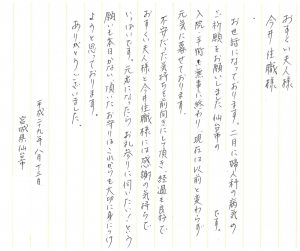 おすくい夫人様
今井住職様
お世話になっております。二月に婦人科の病気の
ご祈願をお願いしました仙台市の です。
入院、手術も無事に終わり、現在は以前と変わらず
元気に暮せております。
不安だった気持ちを前向きにして頂き、経過も良好で
おすくい夫人様と今井住職様には感謝の気持ちで
いっぱいです。元気になったらお礼参りに伺いたい!という
願いも本日かない、頂いたお守りはこれからも大切に身につけ
ようと思っております。
ありがとうございました。
平成二十九年八月十三日
宮城県仙台市